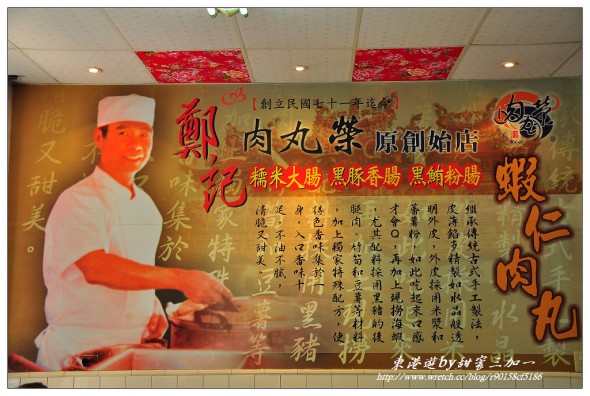 鄭記
【創立民國七十一年迄今】
肉丸榮 原創始店
糯米大腸 黑豚香腸 黑鮪粉腸
肉丸榮
蝦仁肉丸
繼承傳統古式手工製法，
皮薄餡多精製如水晶般透
明外皮，外皮採用米漿和
蕃薯粉，如此吃起來口感
才會Q，再加上現撈海蝦
，尤其配料採用黑豬的後
腿肉，竹筍和豆薯等材料
，加上獨家特殊配方，使
特色香味集於一
身，入口香味十
足，不油不膩，
清脆又甜美，
脆又甜美。
味集於
家特殊
豆薯等
黑豬
撈
水晶
東港遊by甜蜜三加一
http://www.wretch.cc/blog/r90158cf5186